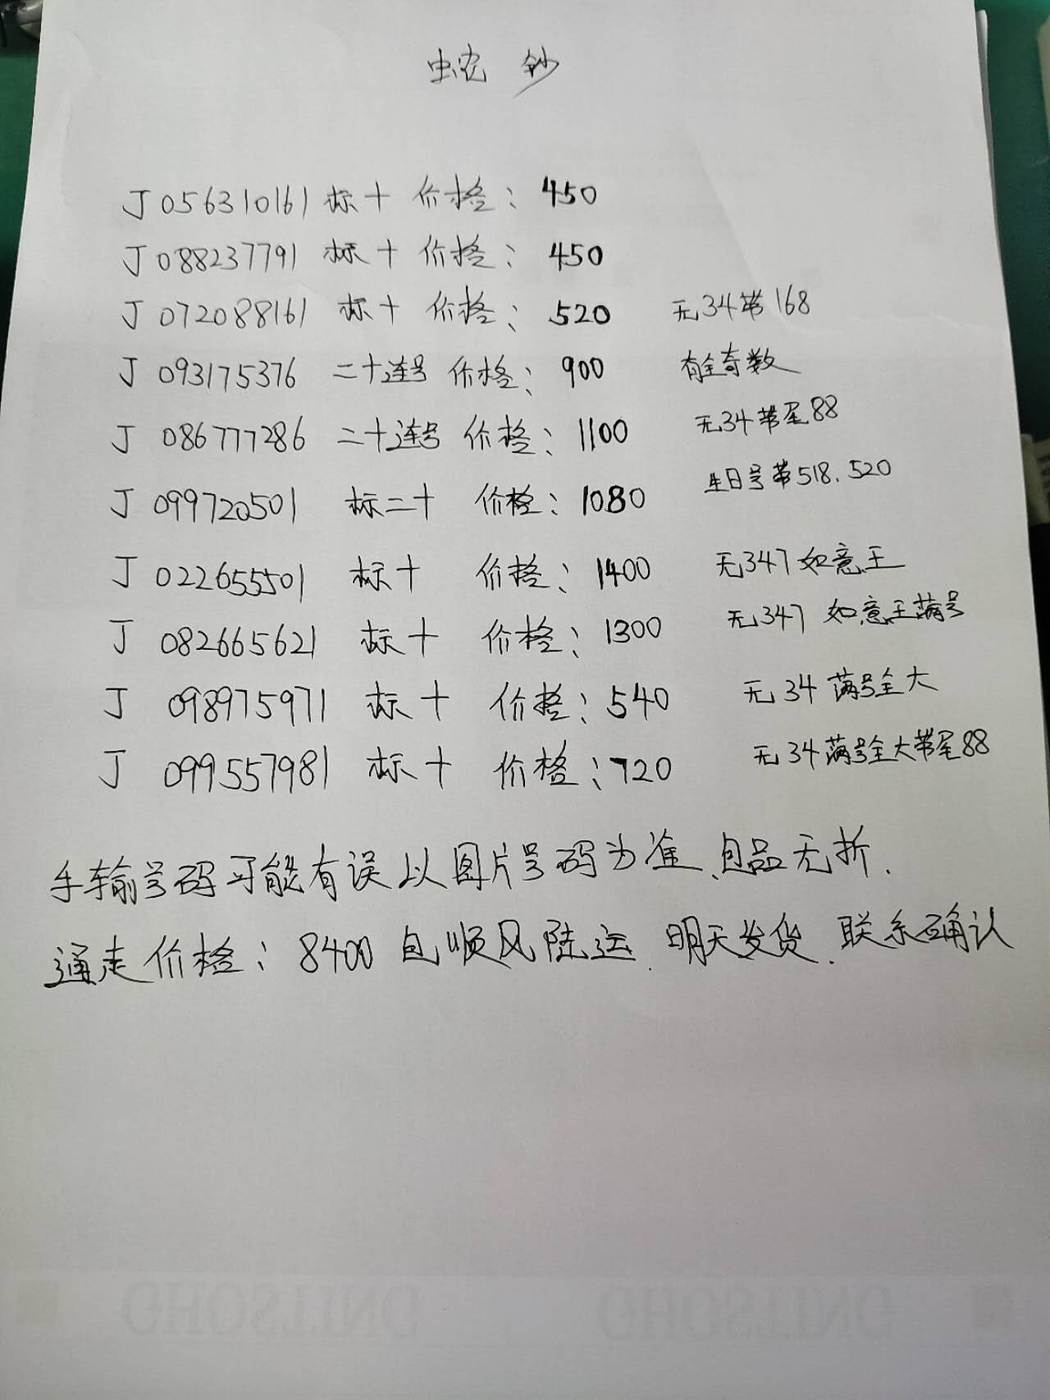 蛇钞
J056310161 标十 价格：450
J088237791 标十 价格：450
J072088161 标十 价格：520 无34带168
J093175376 二十连号 价格：900 有全奇数
J086777286 二十连号 价格：1100 无34带尾88
J099720501 标二十 价格：1080 生日号带518.520
J022655501 标十 价格：1400 无347如意王
J082665621 标十 价格：1300 无347 如意王满号
J098975971 标十 价格：540 无34满号全大
J099557981 标十 价格：720 无34满号全大带尾88
手输号码可能有误以图片号码为准、包品无折.
通走价格：8400包顺风陆运.明天发货.联系确认
GHOSTING GHOSTING